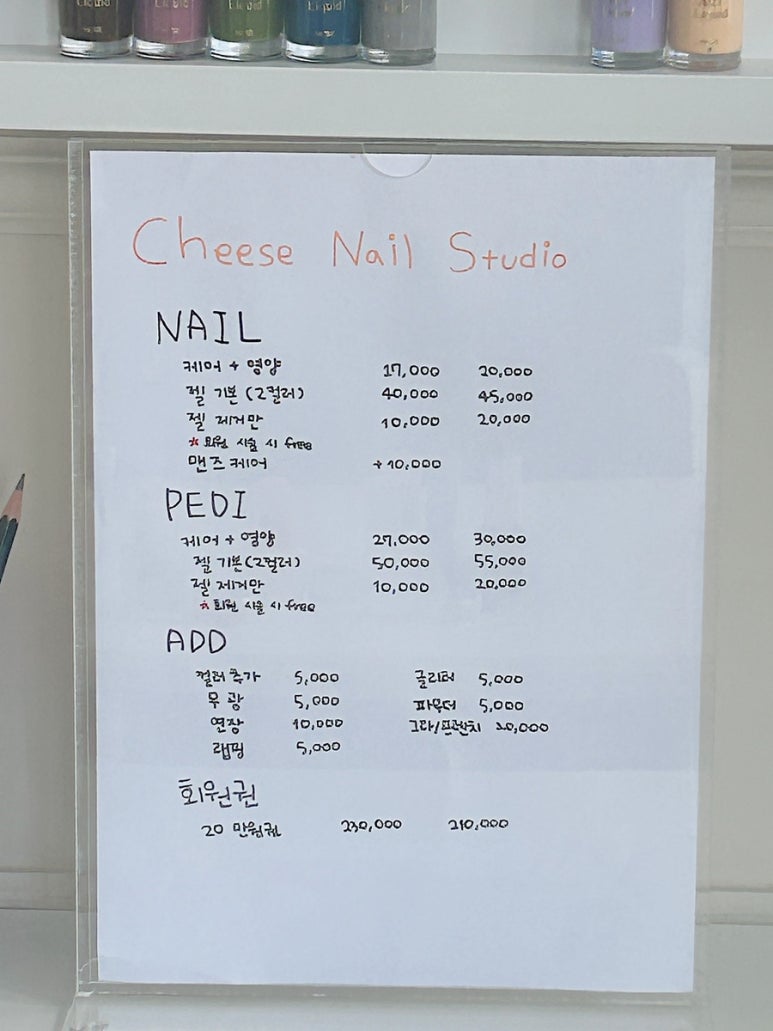 Liquid
Liquid
Liquid
Cheese Nail Studio
NAIL
케어 + 영양 17,000 20,000
젤 기본 (2컬러) 40,000 45,000
젤 제거만 10,000 20,000
* 회원 시술 시 free
맨즈 케어 +10,000
PEDI
케어 + 영양 27,000 30,000
젤 기본 (2컬러) 50,000 55,000
젤 제거만 10,000 20,000
* 회원 시술 시 free
ADD
컬러 추가 5,000 글리터 5,000
무광 5,000 파우더 5,000
연장 10,000 그라/프렌치 20,000
랩핑 5,000
회원권
20 만원권 230,000 210,000